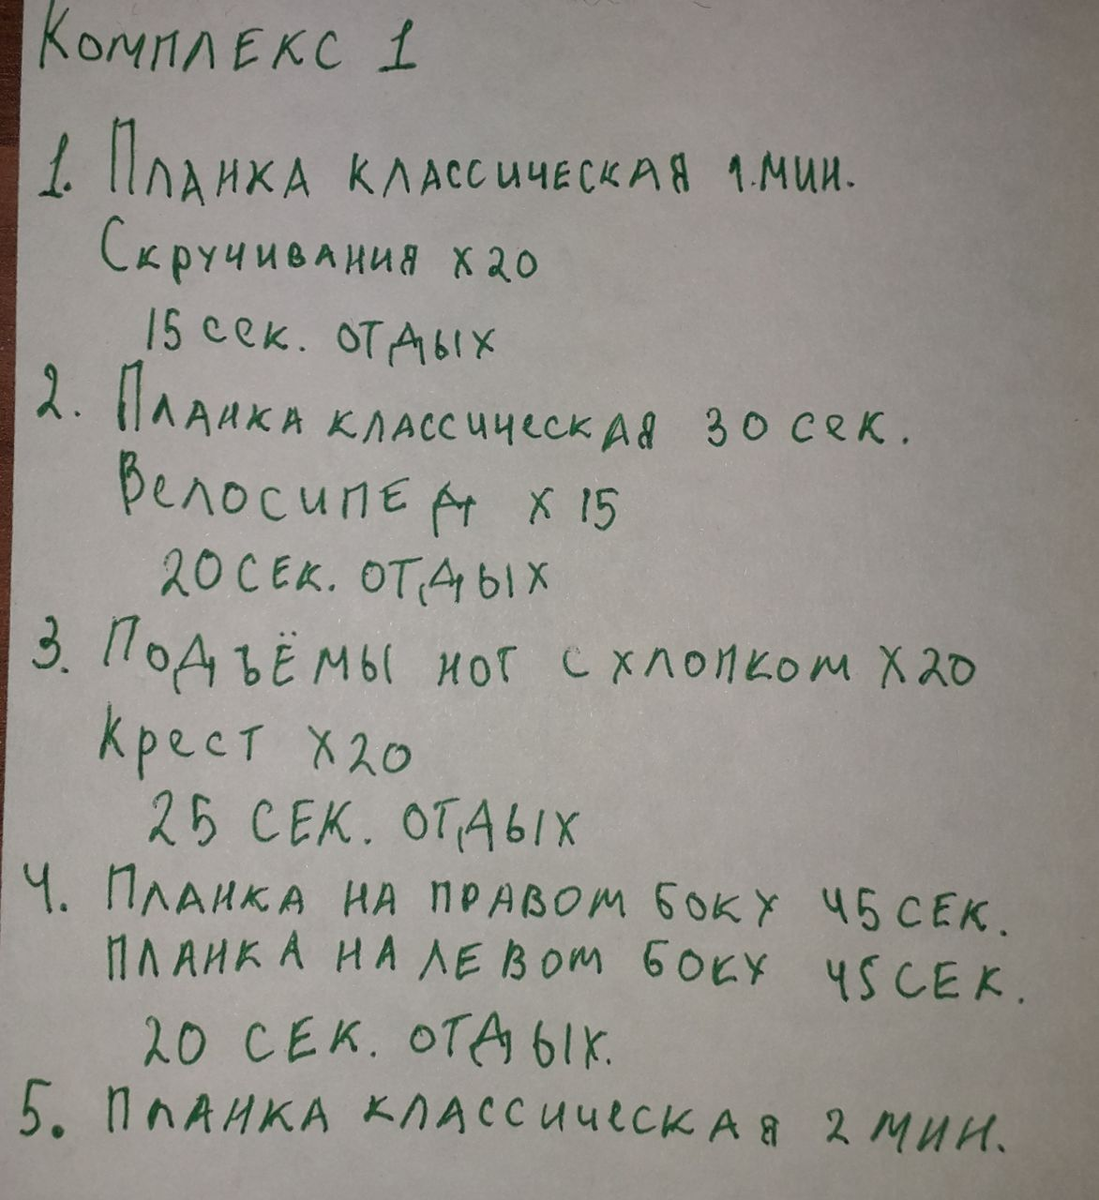 Комплекс 1
1. Планка классическая 1.мин.
Скручивания х20
15 сек. отдых
2. Планка классическая 30 сек.
Велосипед х 15
20 сек. отдых
3. Подъёмы ног с хлопком х20
Крест х20
25 сек. отдых
4. Планка на правом боку 45 сек.
планка на левом боку 45 сек.
20 сек. отдых.
5. Планка классическая 2 мин.